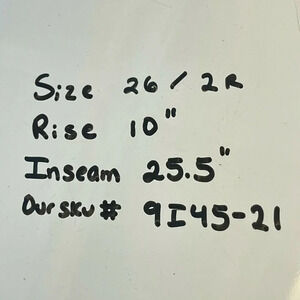 Size 26 / 2R
Rise 10"
Inseam 25.5"
Our sku # 9I45-21